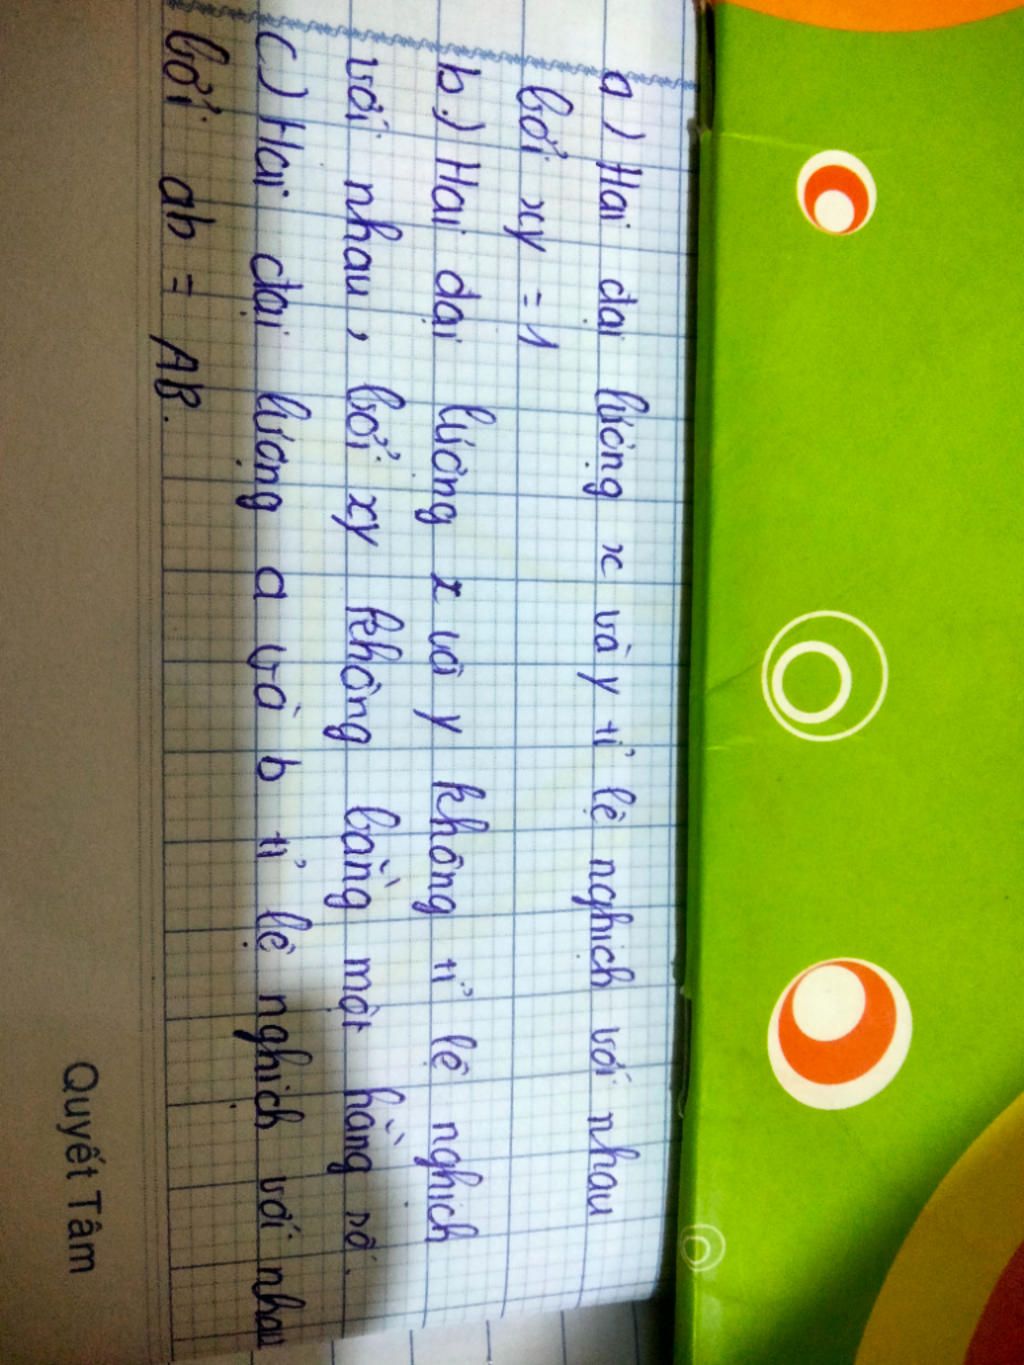 a) Hai đại lượng x và y tỉ lệ nghịch với nhau
bởi xy = 1
b.) Hai đại lượng x và y không tỉ lệ nghịch
với nhau, bởi xy không bằng một hằng số.
c) Hai đại lượng a và b tỉ lệ nghịch với nhau
bởi ab = AB.
Quyết Tâm